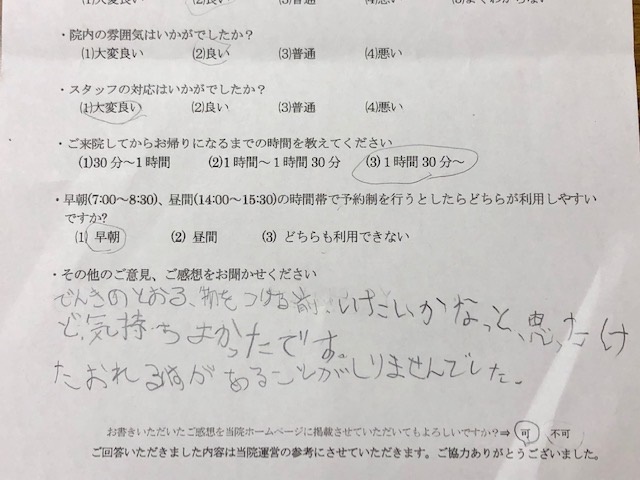 (1)大変良い (2)良い (3)普通 (4)悪い (5)よくわからない
・院内の雰囲気はいかがでしたか?
(1)大変良い (2)良い (3)普通 (4)悪い
・スタッフの対応はいかがでしたか?
(1)大変良い (2)良い (3)普通 (4)悪い
・ご来院してからお帰りになるまでの時間を教えてください
(1)30分～1時間 (2)1時間～1時間30分 (3)1時間30分～
・早朝(7:00～8:30)、昼間(14:00～15:30)の時間帯で予約制を行うとしたらどちらが利用しやすい
ですか?
(1) 早朝 (2) 昼間 (3) どちらも利用できない
・その他のご意見、ご感想をお聞かせください
でんきのとおる、物をつける前、いたいかなっと、思ったけ
ど、気持ちよかったです。
たおれるほねがあることがしりませんでした。
お書きいただいたご感想を当院ホームページに掲載させていただいてもよろしいですか?⇒ 可 不可
ご回答いただきました内容は当院運営の参考にさせていただきます。ご協力ありがとうございました。